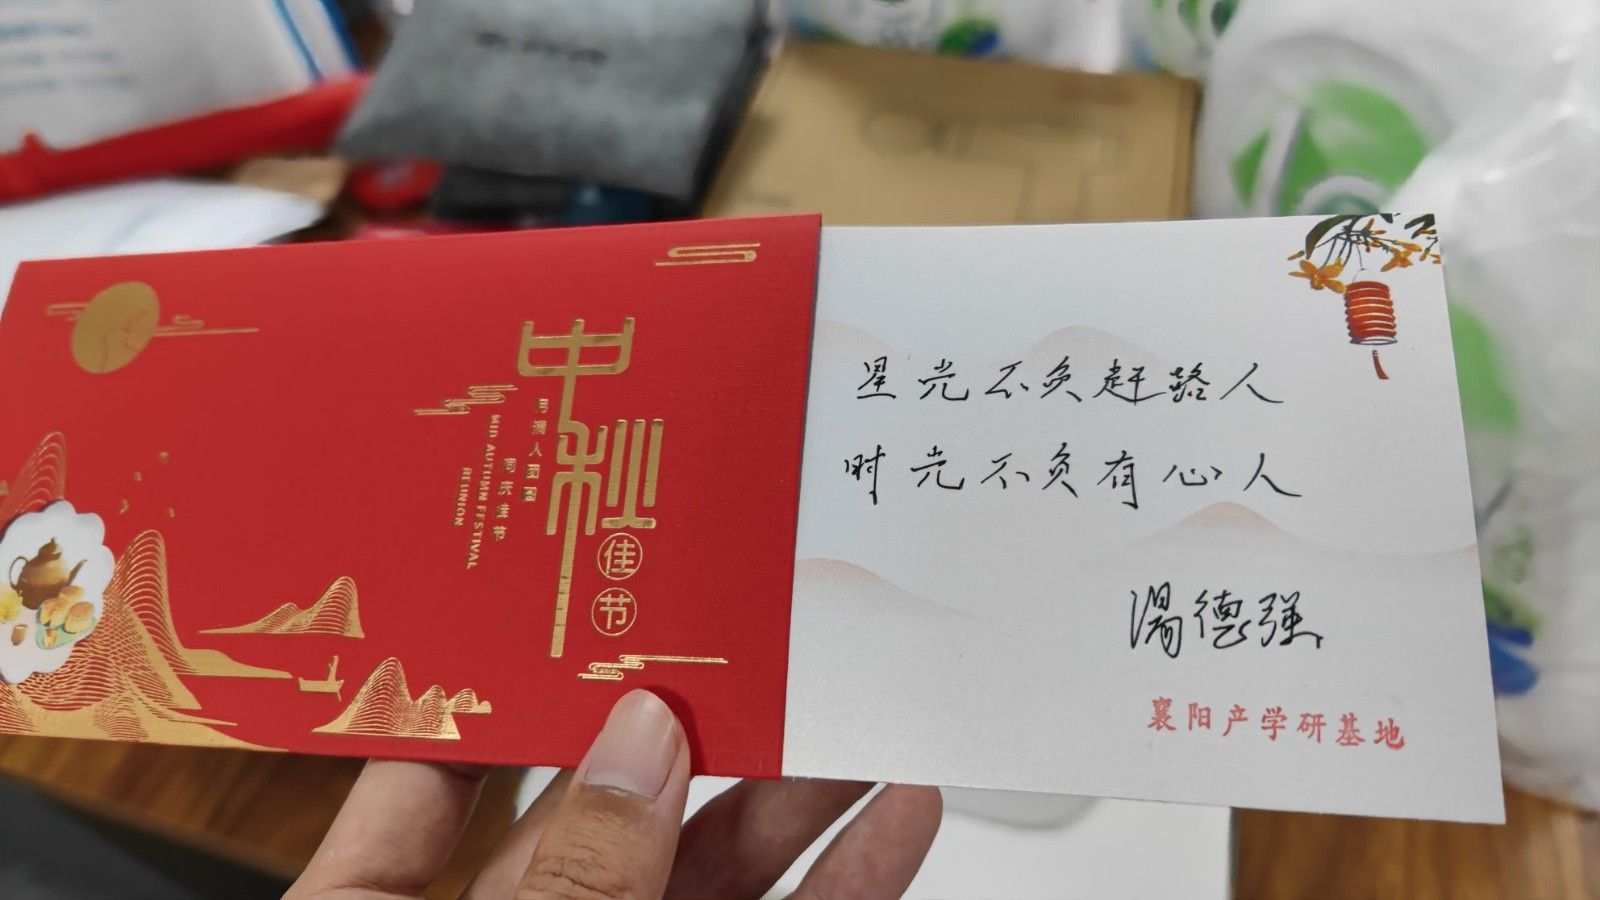 中秋
佳节
月满人团圆
同庆佳节
MID AUTUMN FESTIVAL
REUNION
星光不负赶路人
时光不负有心人
汤德强
襄阳产学研基地